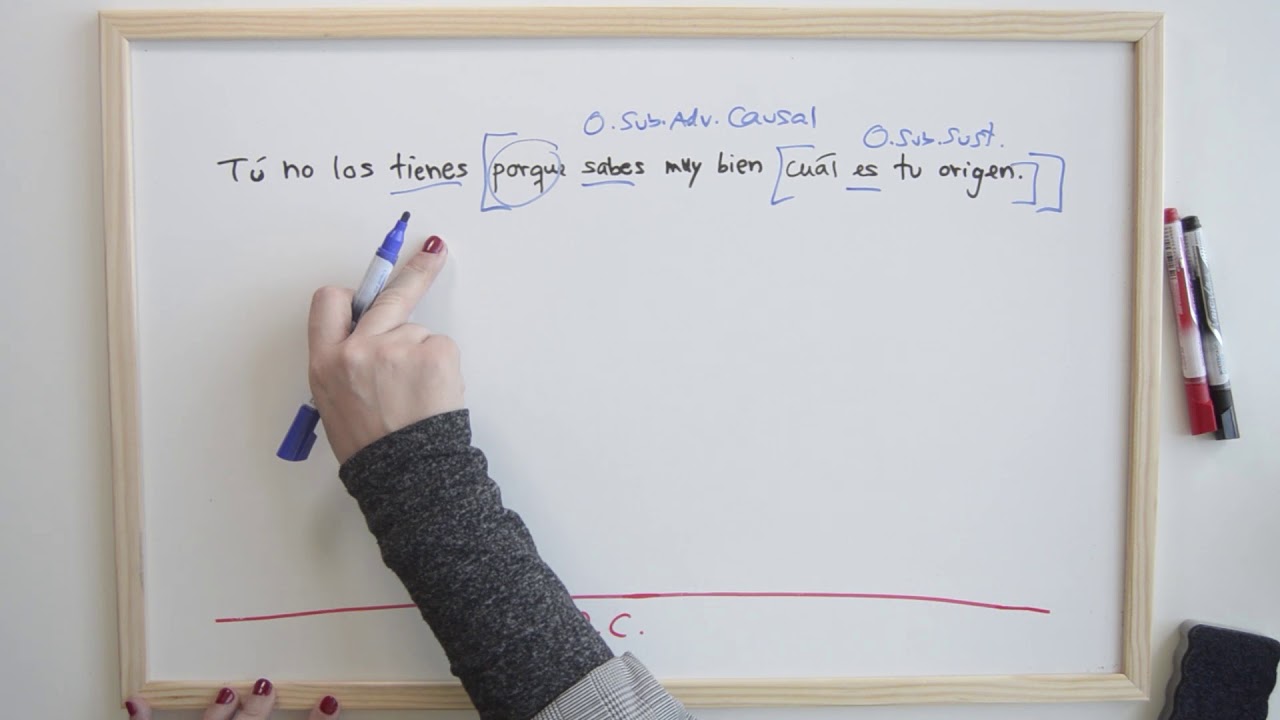 O. Sub. Adv. Causal
O. Sub. Sust.
Tú no los tienes [porque sabes muy bien [cuál es tu origen.]]
C.